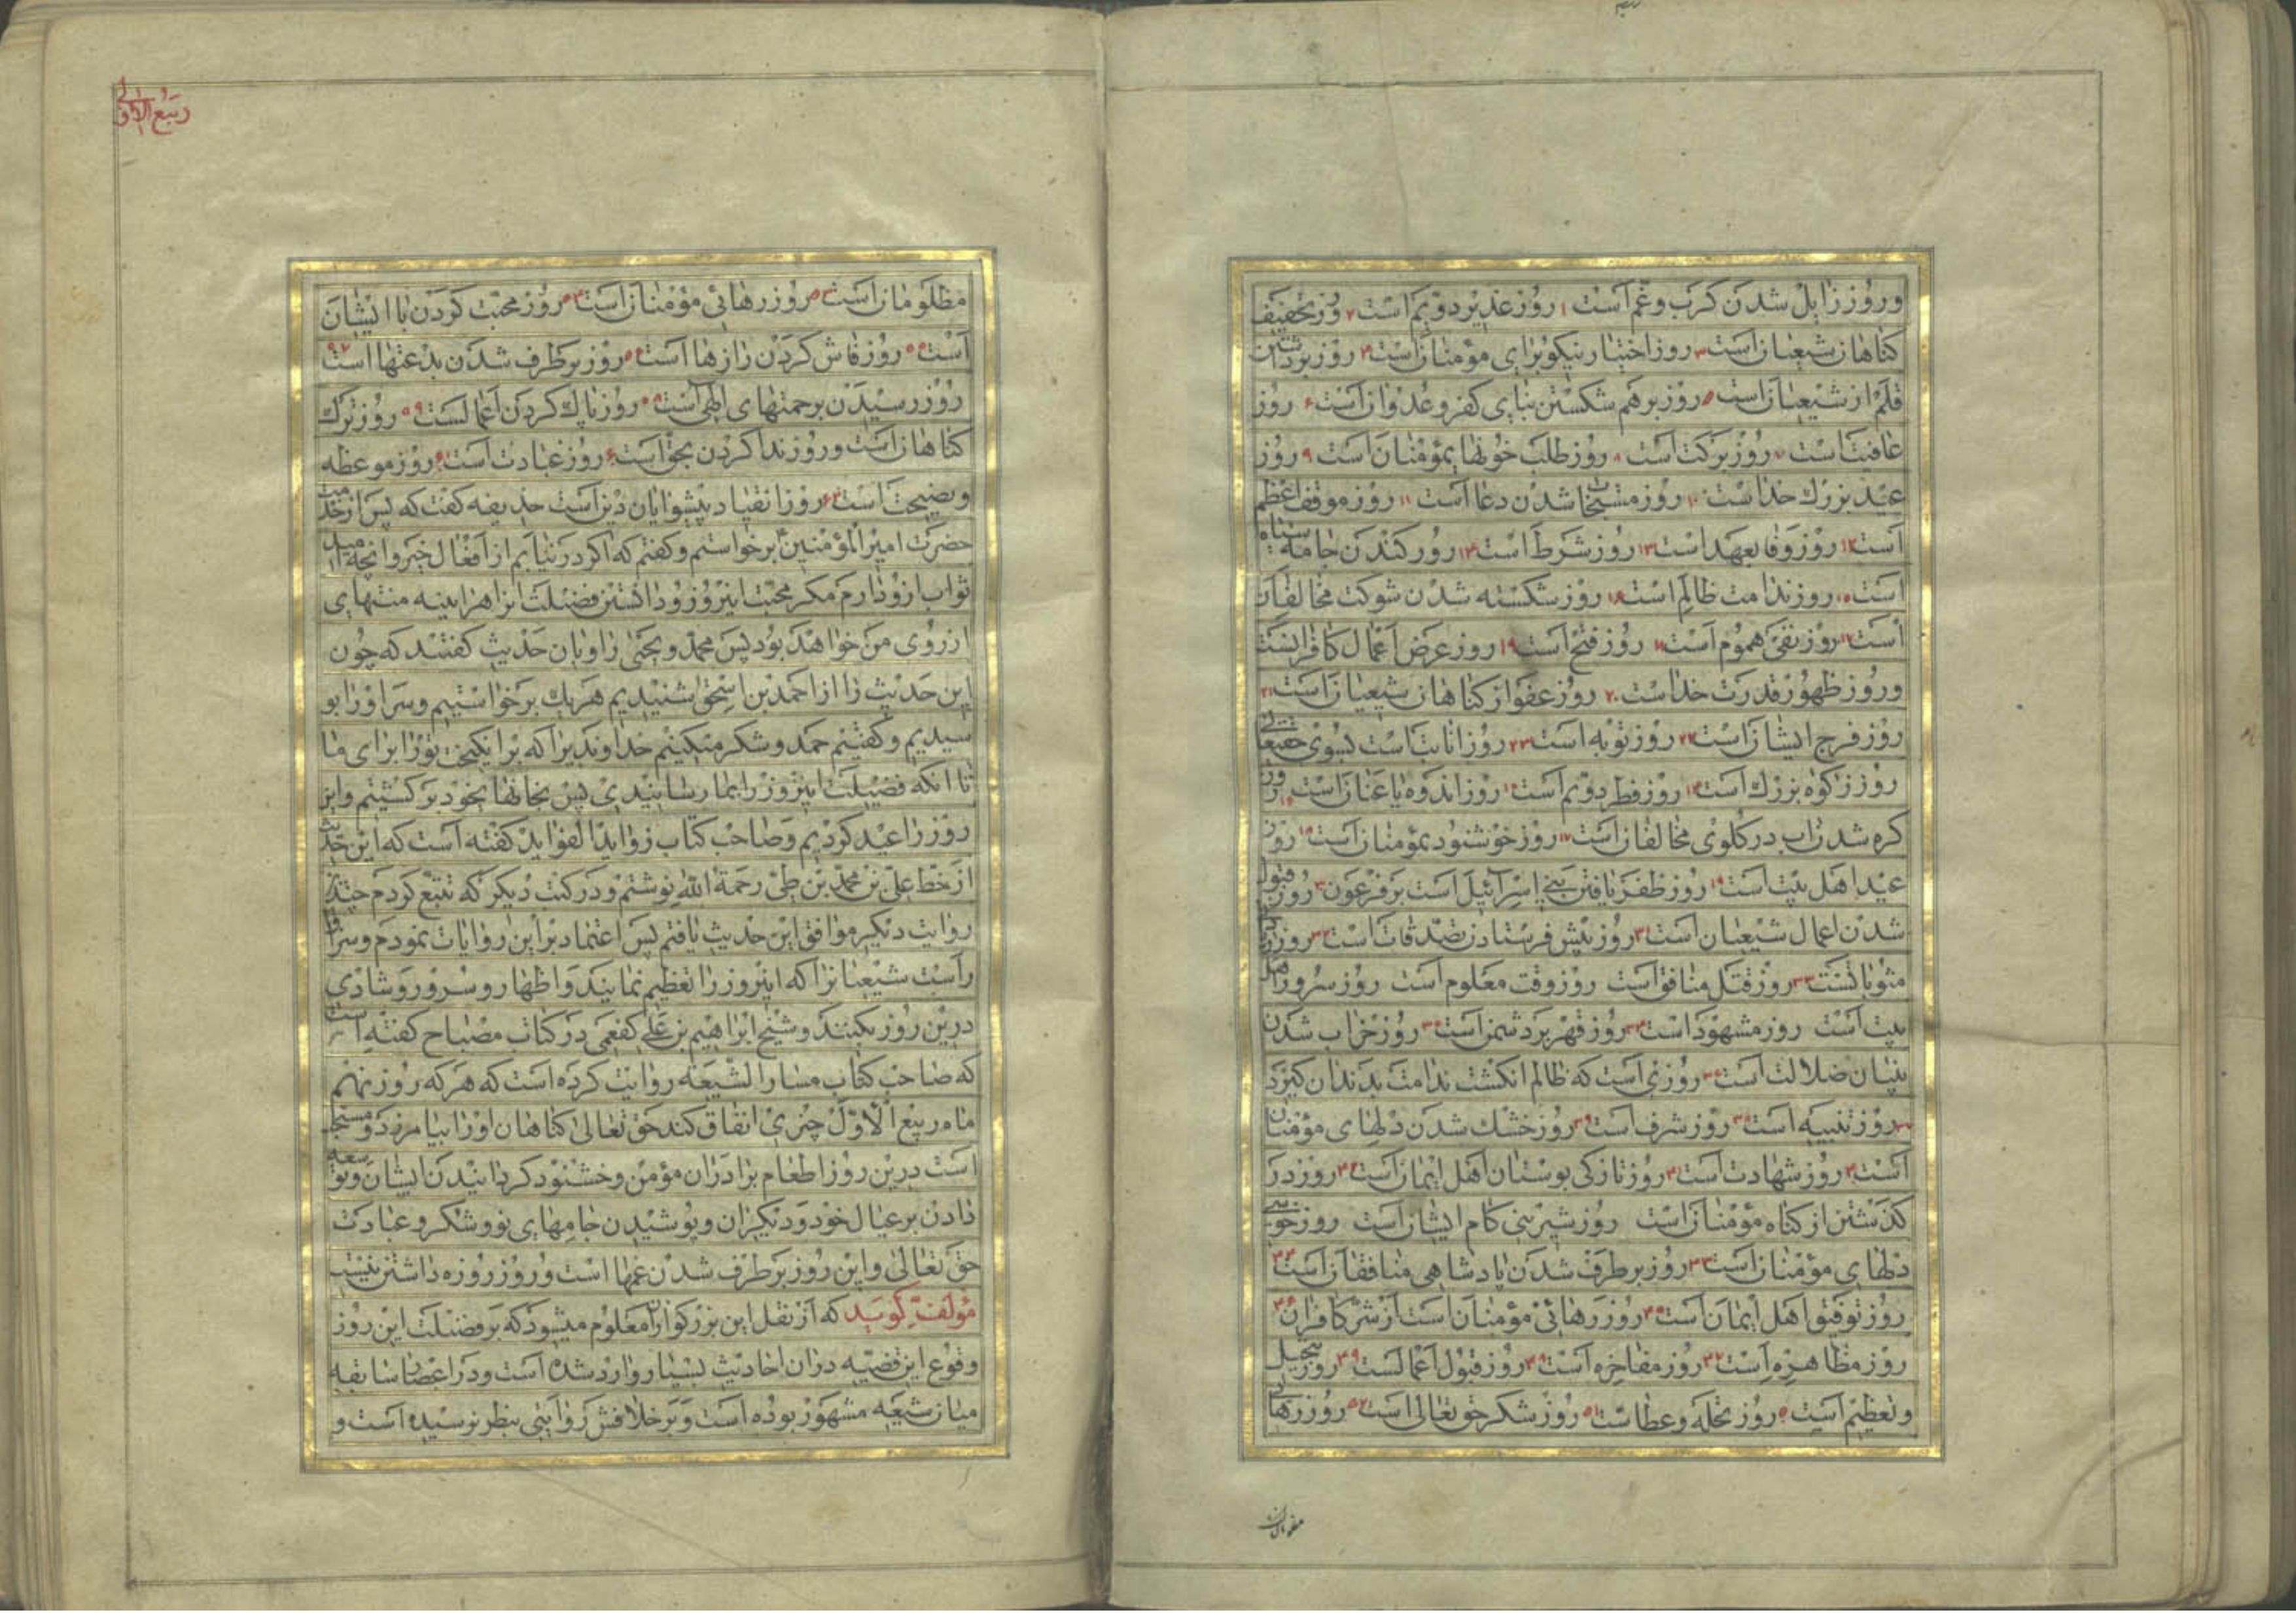 و روز زایل شدن کرب و غم است ۱ روز غدیر دویم است ۲ روز تخفیف
کناهان شیعیان است ۳ روز اختیار نیکو برای مؤمنان است ۴ روز برداشتن
قلم از شیعیان است ۵ روز برهم شکستن بنای کفر و عدوان است ۶ روز
عافیت است ۷ روز برکت است ۸ روز طلب خونهای مؤمنان است ۹ روز
عید بزرک خدا است ۱۰ روز مستجاب شدن دعا است ۱۱ روز موقف اعظم
است ۱۲ روز وفا بعهد است ۱۳ روز شرط است ۱۴ روز کندن جامه سیاه
است ۱۵ روز ندامت ظالم است ۱۶ روز شکسته شدن شوکت مخالفان
است ۱۷ روز نفی هموم است ۱۸ روز فتح است ۱۹ روز عرض اعمال کافرانست
و روز ظهور قدرت خدا است ۲۰ روز عفو از کناهان شیعیان است ۲۱
روز فرج ایشان است ۲۲ روز توبه است ۲۳ روز انابت است بسوی حقتعالی
روز زکوة بزرک است روز فطر دویم است روز اندوه یاغیان است روز
کره شدن اب در کلوی مخالفان است روز خوشنودی مؤمنان است روز
عید اهل بیت است روز ظفر یافتن بنی اسرائیل است بر فرعون روز قبول
شدن اعمال شیعیان است روز پیش فرستادن تصدقات است روز زیادتی
مثوباتست روز قتل منافق است روز وقت معلوم است روز سرور اهل
بیت است روز مشهود است روز قهر بر دشمن است روز خراب شدن
بنیان ضلالت است روزی است که ظالم انکشت ندامت بدندان کیرد
روز تنبیه است روز شرف است روز خنک شدن دلهای مؤمنان
است روز شهادت است روز تازکی بوستان اهل ایمان است روز در
کذشتن از کناه مؤمنان است روز شیرینی کام ایشان است روز خوشی
دلهای مؤمنان است روز برطرف شدن پادشاهی منافقان است
روز توفیق اهل ایمان است روز رهائی مؤمنان است از شر کافران
روز مظاهره است روز مفاخره است روز قبول اعمالست روز تبجیل
و تعظیم است روز نحله و عطاست روز شکر حق تعالی است روز رهائی
مظلومان
ربیع الاول
مظلومان است روز رهائی مؤمنان است روز محبت کردن با ایشان
است روز فاش کردن رازها است روز برطرف شدن بدعتها است
روز رسیدن برحمتهای الهی است روز پاک کردن اعمالست روز ترک
کناهان است و روز ندا کردن بحق است روز عبادت است روز موعظه
و نصیحت است روز انقیاد پیشوایان دین است حذیفه کفت که پس از خدمت
حضرت امیر المؤمنین برخواستم و کفتم که اکر در نیابم از افعال خیر و انچه امید
ثواب ازو دارم مکر محبت اینروز و دانستن فضیلت انرا هراینه منتهای
ارزوی من خواهد بود پس محمد و یحیی راویان حدیث کفتند که چون
این حدیث را از احمد بن اسحق شنیدیم هریک برخواستیم و سر او را بو
سیدیم و کفتیم حمد و شکر میکنیم خداوندیرا که برانکیخت تو را برای ما
تا انکه فضیلت اینروز را بما رسانیدی پس بخانهای خود برکشتیم و این
روز را عید کردیم و صاحب کتاب زواید الفواید کفته است که این حدیث
از خط علی بن محمد بن طی رحمة الله نوشتم و در کتب دیکر که تتبع کردم چند
روایت دیکر موافق این حدیث یافتم پس اعتماد بر این روایات نمودم و سزاوار
است شیعیانرا که اینروز را تعظیم نمایند و اظهار و سرور و شادی
درین روز بکنند و شیخ ابراهیم بن علی کفعمی در کتاب مصباح کفته است
که صاحب کتاب مسار الشیعه روایت کرده است که هرکه روز نهم
ماه ربیع الاول چیزی انفاق کند حق تعالی کناهان او را بیامرزد و مستحب
است درین روز اطعام برادران مؤمن و خشنود کردانیدن ایشان و توسعه
دادن بر عیال خود و دیکران و پوشیدن جامهای نو و شکر و عبادت
حق تعالی و این روز برطرف شدن غمها است و روز روزه داشتن نیست
مؤلف کوید که از نقل این بزرکواران معلوم میشود که بر فضیلت این روز
وقوع این قضیه دران احادیث بسیار وارد شده است و در اعصار سابقه
میان شیعه مشهور بوده است و بر خلافش روایتی بنظر نرسیده است و